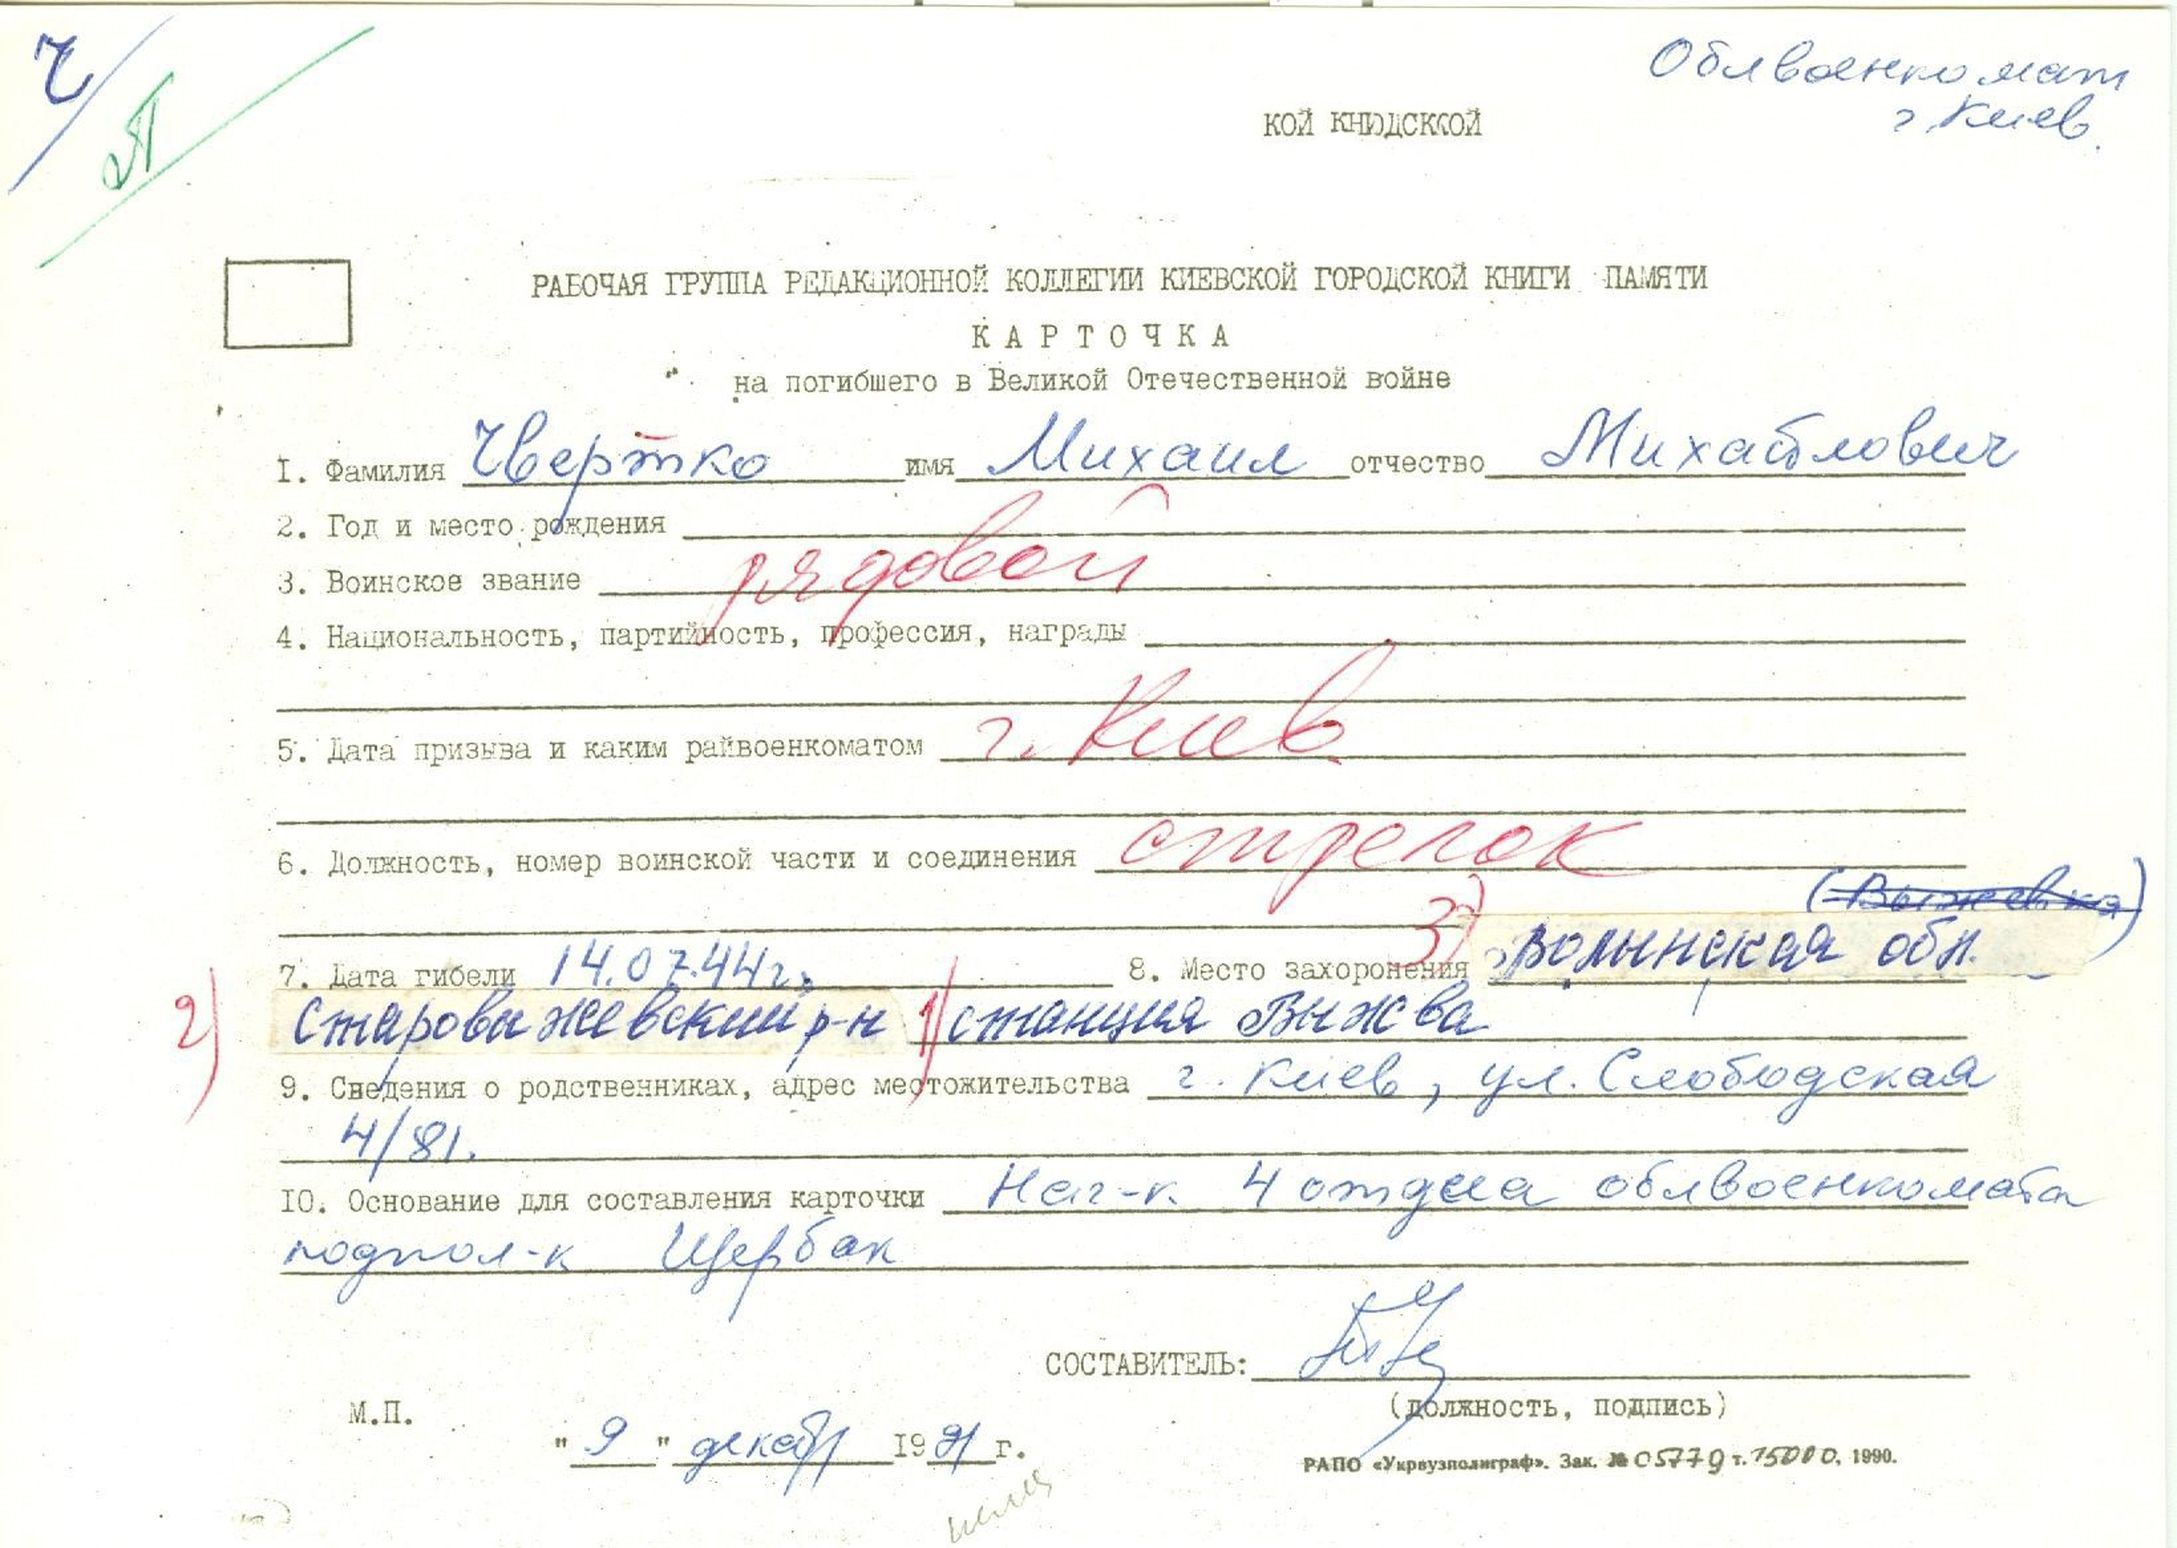 Ч
Облвоенкомат
г. Киев.
КОЙ КНЮДСКСОЙ
РАБОЧАЯ ГРУППА РЕДАКЦИОННОЙ КОЛЛЕГИИ КИЕВСКОЙ ГОРОДСКОЙ КНИГИ ПАМЯТИ
КАРТОЧКА
на погибшего в Великой Отечественной войне
I. Фамилия Чвертко имя Михаил отчество Михайлович
2. Год и место рождения
3. Воинское звание рядовой
4. Национальность, партийность, профессия, награды
5. Дата призыва и каким райвоенкоматом г. Киев
6. Должность, номер воинской части и соединения стрелок
(Выжевка)
7. Дата гибели 14.07.44г. 8. Место захоронения 3) Волынская обл.
2) Старовыжевский р-н 1) станция Выжва
9. Сведения о родственниках, адрес местожительства г. Киев, ул. Слободская
4/81.
IO. Основание для составления карточки Нач-к 4 отдела облвоенкомата
подпол-к Щербак
СОСТАВИТЕЛЬ:
(должность, подпись)
М.П.
"9" декабр 1991 г.
РАПО «Укрвузполиграф». Зак. № 05779 т. 15000, 1990.